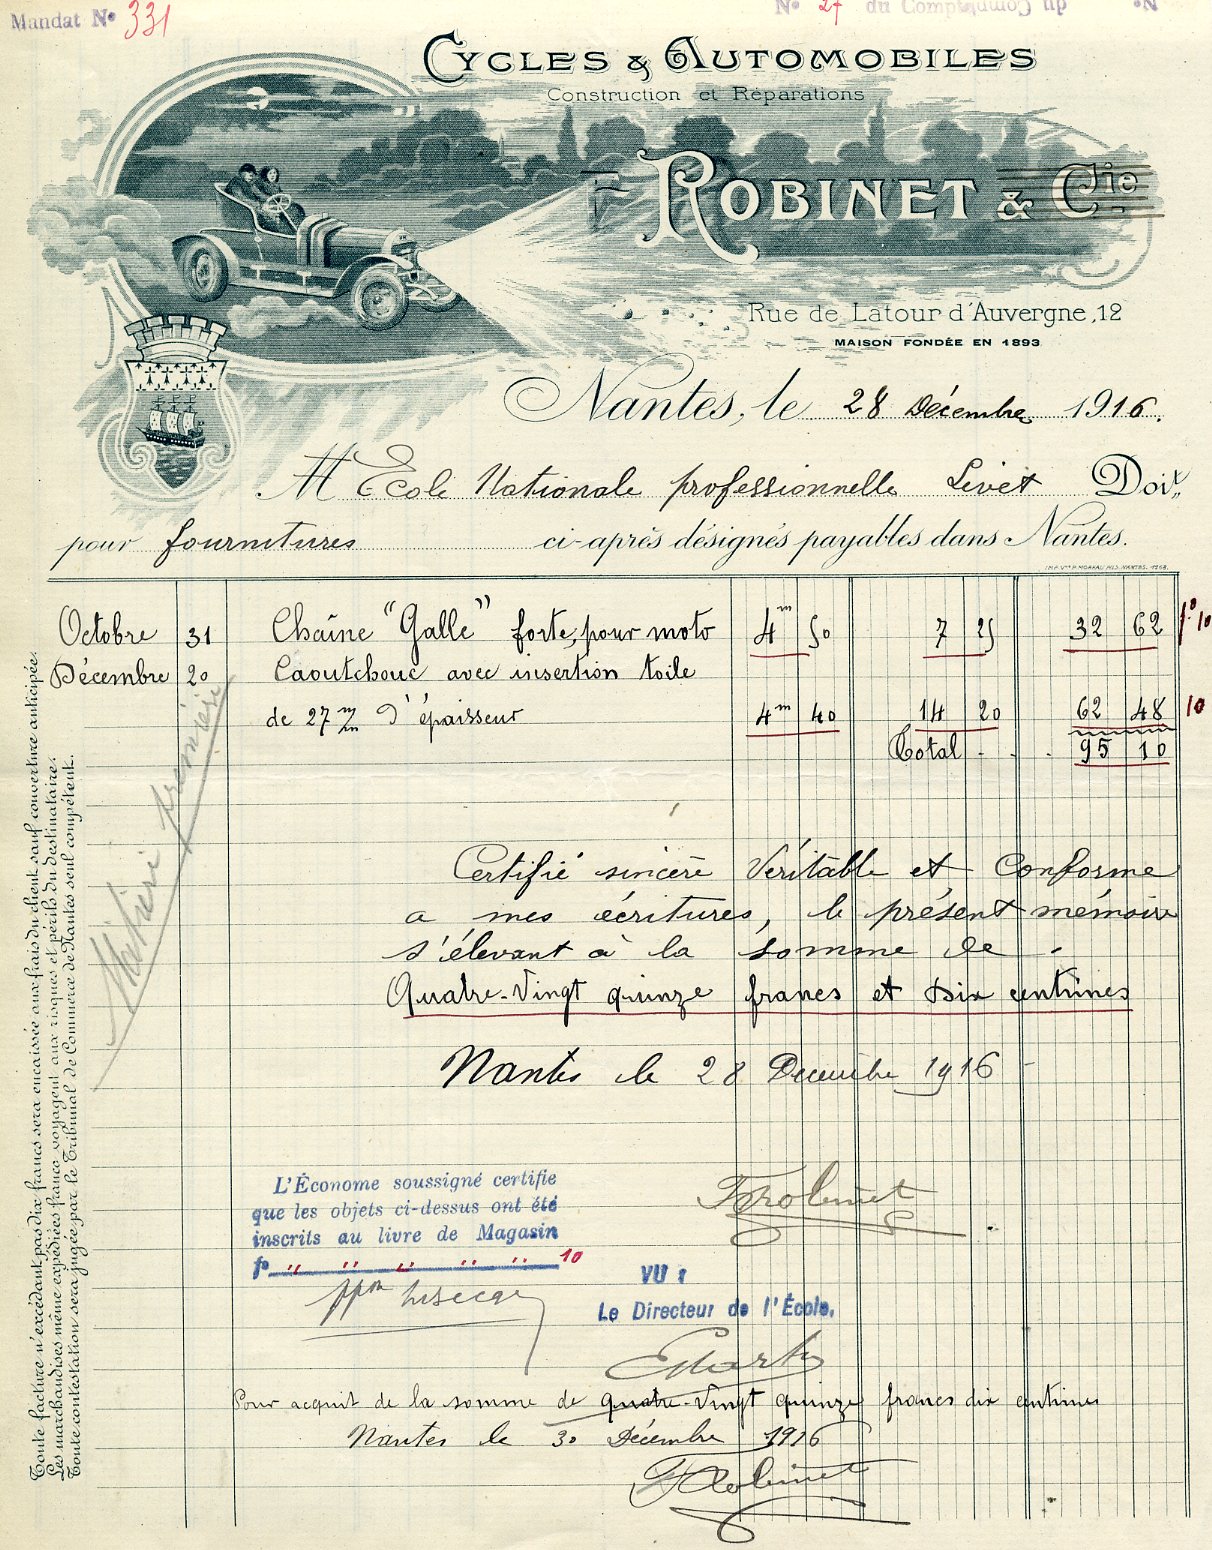 Mandat N° 331
N° 27 du Comptable
Cycles & Automobiles
Construction et Réparations
F. Robinet & Cie
Rue de Latour d'Auvergne, 12
MAISON FONDÉE EN 1893
Nantes, le 28 Décembre 1916.
M Ecole Nationale professionnelle Livet Doit
pour fournitures ci-après désignés payables dans Nantes.
Octobre 31 Chaîne "Galle" forte, pour moto 4m 50 7 25 32 62 f° 10
Décembre 20 Caoutchouc avec insertion toile
de 27 m/m d'épaisseur 4m 40 14 20 62 48 10
Total 95 10
Matière première
Certifié sincère Véritable et Conforme
a mes écritures, le présent mémoire
s'élevant à la somme de
Quatre-Vingt quinze francs et dix centimes
Nantes le 28 Décembre 1916
L'Économe soussigné certifie
que les objets ci-dessus ont été
inscrits au livre de Magasin
f° " " " " " 10
FRobinet
VU :
Le Directeur de l'École,
Pour acquit de la somme de quatre-Vingt quinze francs dix centimes
Nantes le 30 Décembre 1916
FRobinet
Toute facture n'excédant pas dix francs sera encaissée aux frais du client sauf couverture anticipée.
Les marchandises même expédiées franco voyagent aux risques et périls du destinataire.
Toute contestation sera jugée par le Tribunal de Commerce de Nantes seul compétent.